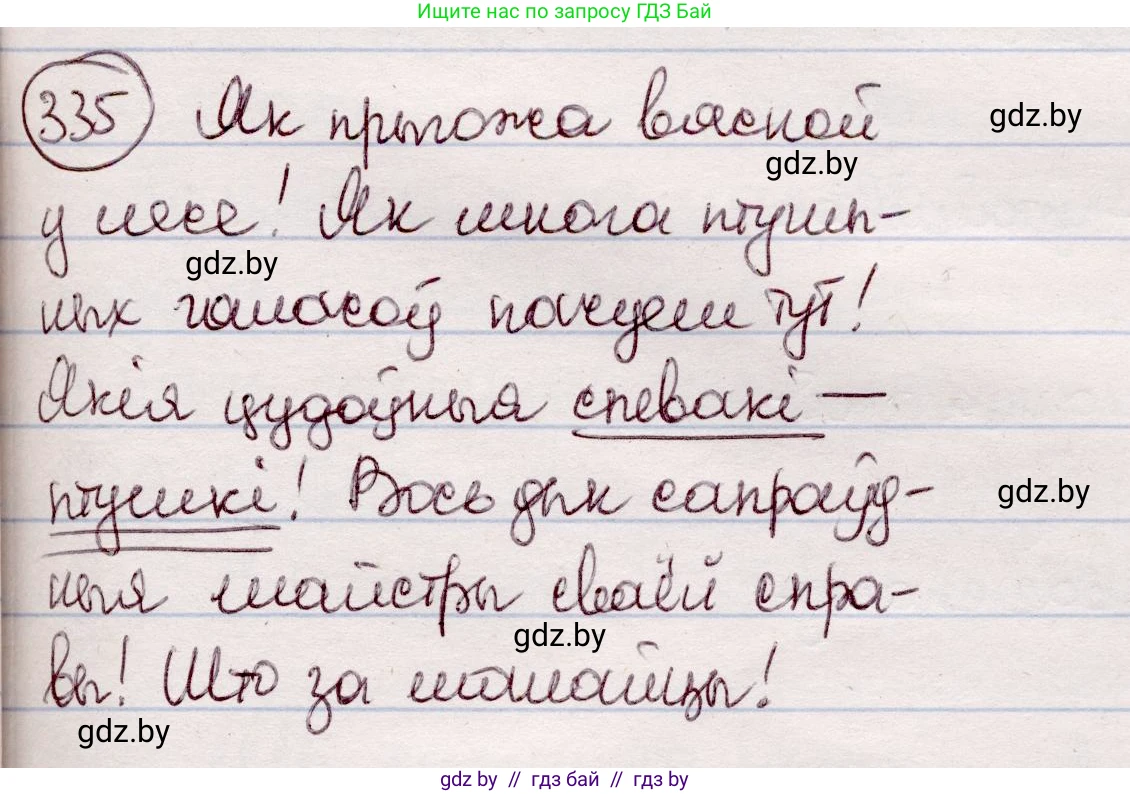 Ищите нас по запросу ГДЗ Бай
335 Як прыгожа вясной
gdz.by
gdz.by
у лесе! Як многа птушы-
gdz.by
ных галасоў пачуеш тут!
Якія цудоўныя спевакі —
птушкі! Вось дык сапраўд-
gdz.by
ныя майстры сваёй спра-
gdz.by
вы! Што за малайцы!
gdz.by
gdz by // гдз бай // гдз by